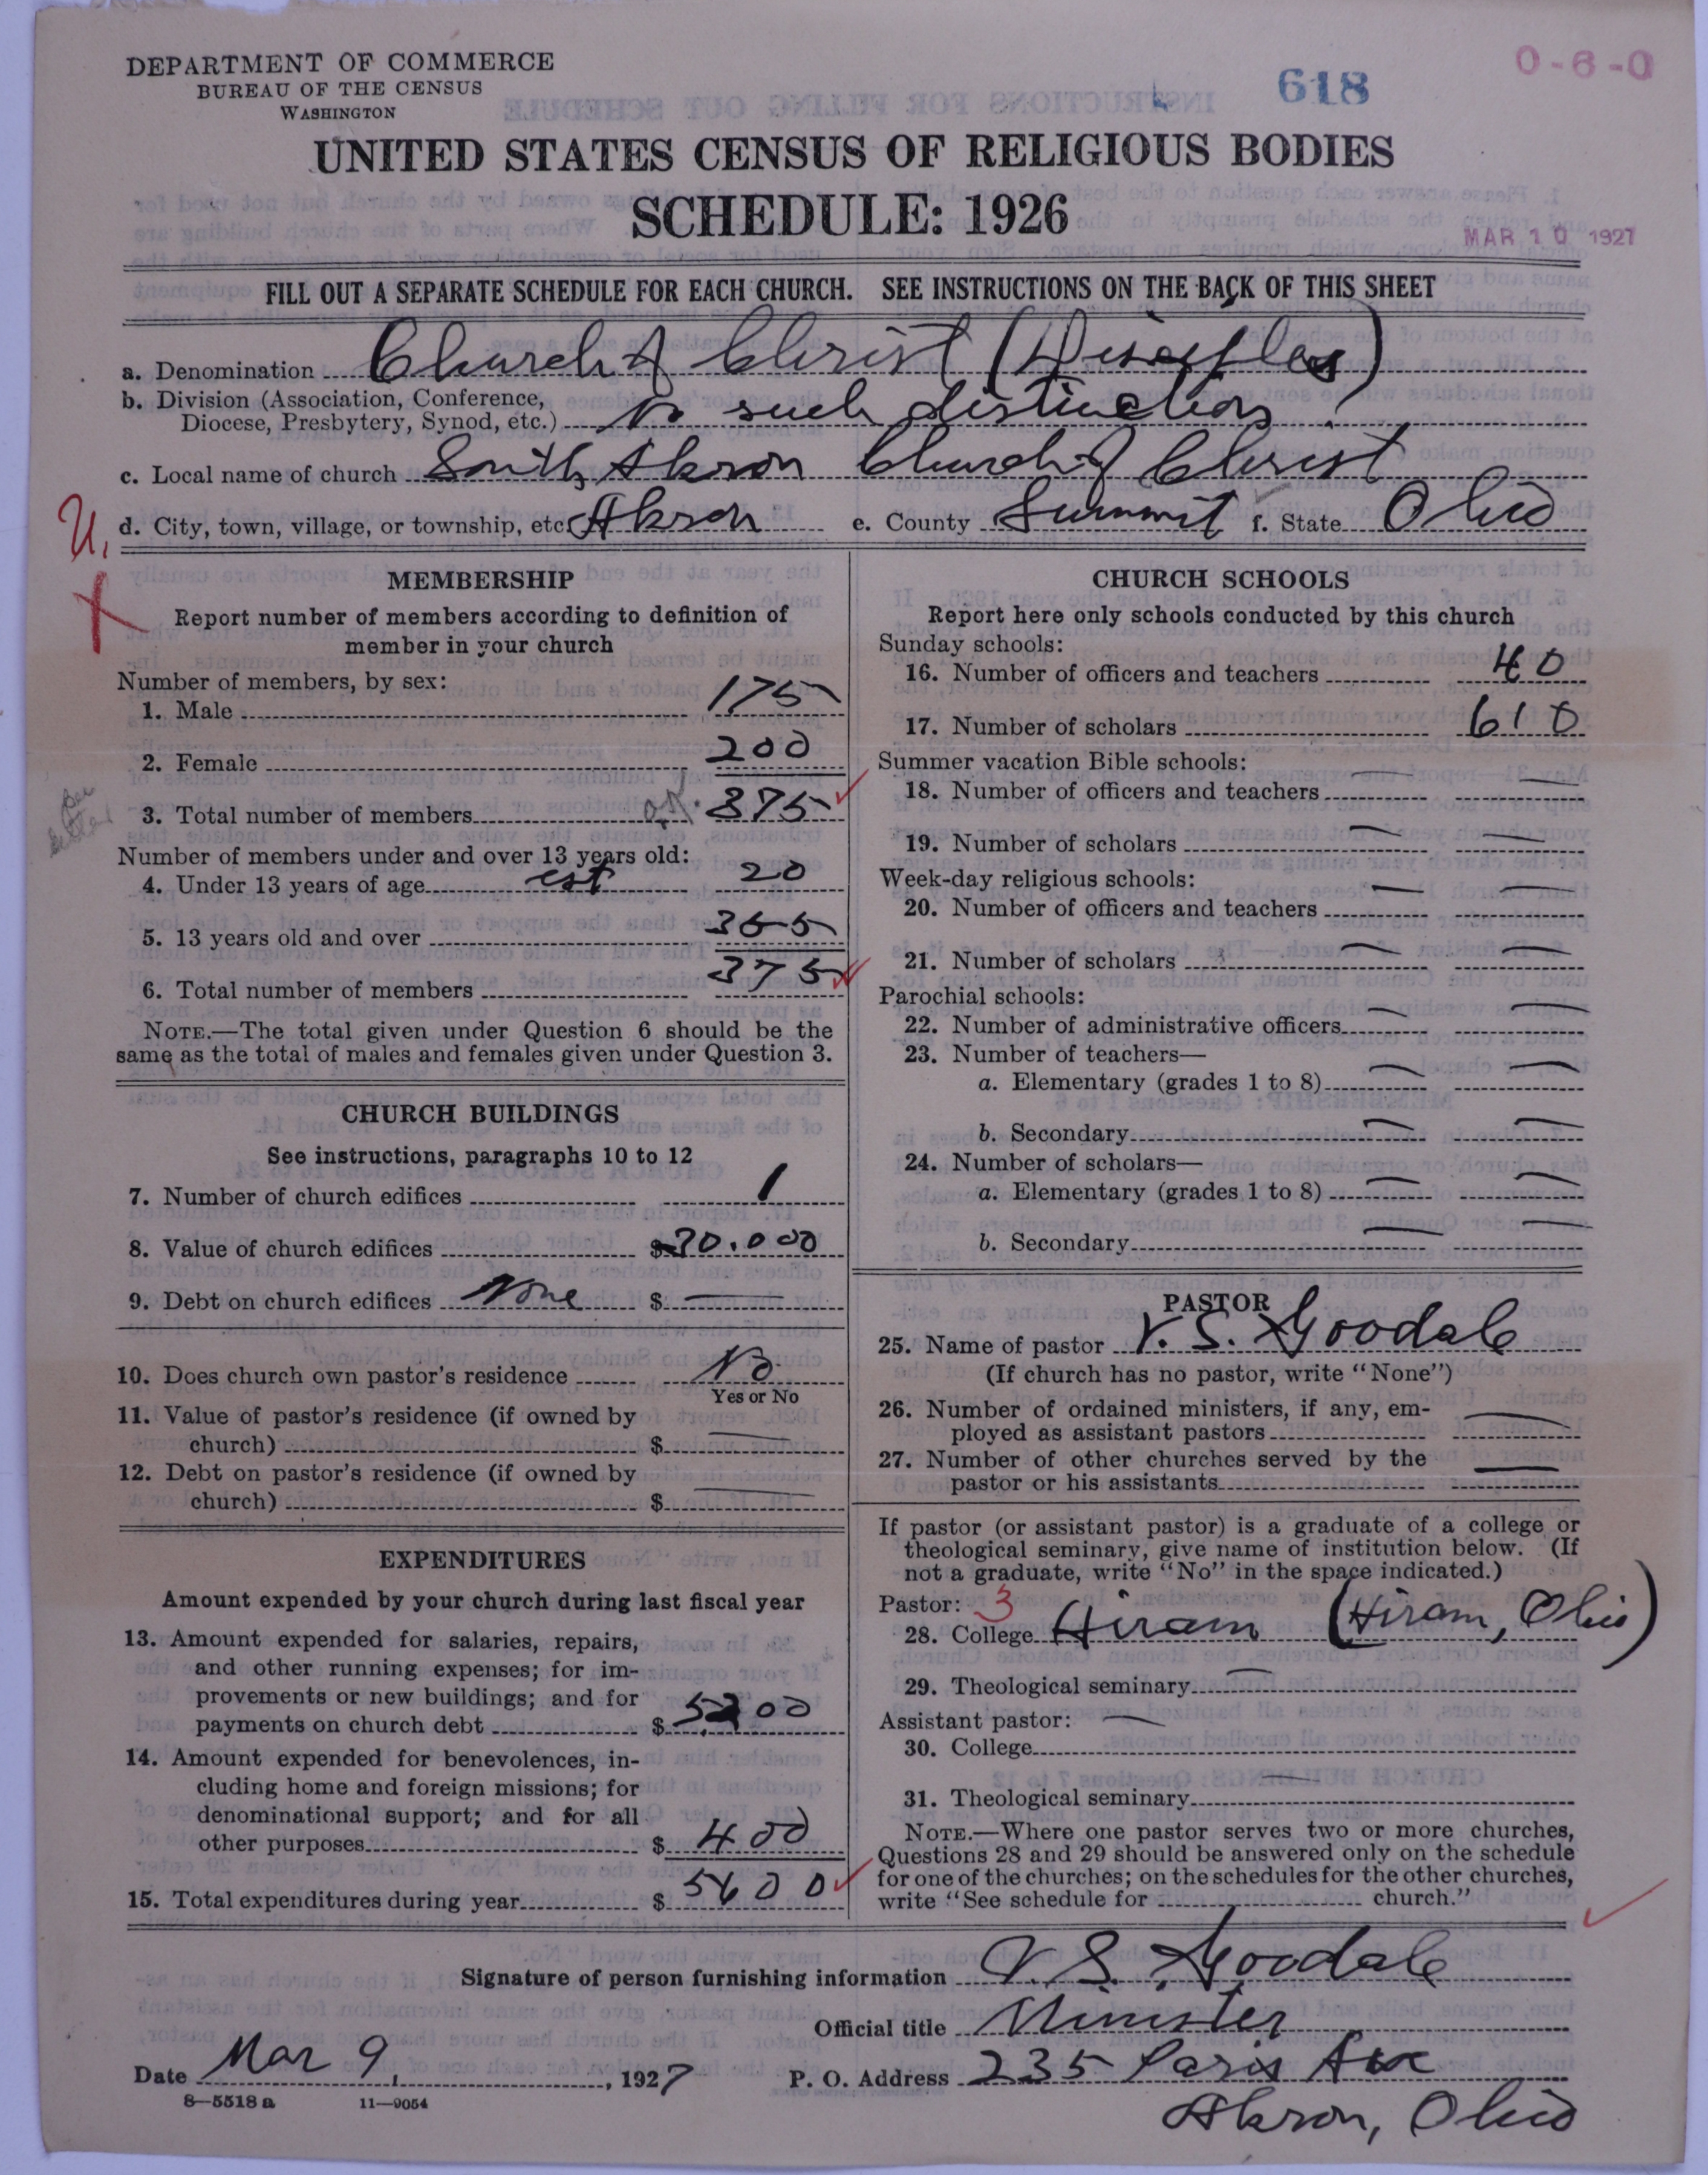 DEPARTMENT OF COMMERCE
BUREAU OF THE CENSUS
WASHINGTON
618
0-6-0
UNITED STATES CENSUS OF RELIGIOUS BODIES
SCHEDULE: 1926
MAR 10 1927
FILL OUT A SEPARATE SCHEDULE FOR EACH CHURCH. SEE INSTRUCTIONS ON THE BACK OF THIS SHEET
a. Denomination Church of Christ (Disciples)
b. Division (Association, Conference,
Diocese, Presbytery, Synod, etc.) No such distinction
c. Local name of church South Akron Church of Christ
U.
d. City, town, village, or township, etc. Akron e. County Summit f. State Ohio
MEMBERSHIP
Report number of members according to definition of
member in your church
Number of members, by sex:
1. Male 175
2. Female 200
3. Total number of members 375
Number of members under and over 13 years old:
4. Under 13 years of age est 20
5. 13 years old and over 355
6. Total number of members 375
NOTE.—The total given under Question 6 should be the
same as the total of males and females given under Question 3.
CHURCH BUILDINGS
See instructions, paragraphs 10 to 12
7. Number of church edifices 1
8. Value of church edifices $ 0.000
9. Debt on church edifices None $ —
10. Does church own pastor's residence No
Yes or No
11. Value of pastor's residence (if owned by
church) $ —
12. Debt on pastor's residence (if owned by
church) $ —
EXPENDITURES
Amount expended by your church during last fiscal year
13. Amount expended for salaries, repairs,
and other running expenses; for im-
provements or new buildings; and for
payments on church debt $ 5200
14. Amount expended for benevolences, in-
cluding home and foreign missions; for
denominational support; and for all
other purposes $ 400
15. Total expenditures during year $ 5600
CHURCH SCHOOLS
Report here only schools conducted by this church
Sunday schools:
16. Number of officers and teachers 40
17. Number of scholars 610
Summer vacation Bible schools:
18. Number of officers and teachers — —
19. Number of scholars — —
Week-day religious schools:
20. Number of officers and teachers — —
21. Number of scholars — —
Parochial schools:
22. Number of administrative officers — —
23. Number of teachers—
a. Elementary (grades 1 to 8) — —
b. Secondary — —
24. Number of scholars—
a. Elementary (grades 1 to 8) — —
b. Secondary — —
PASTOR
25. Name of pastor V. S. Goodale
(If church has no pastor, write "None")
26. Number of ordained ministers, if any, em-
ployed as assistant pastors —
27. Number of other churches served by the
pastor or his assistants —
If pastor (or assistant pastor) is a graduate of a college or
theological seminary, give name of institution below. (If
not a graduate, write "No" in the space indicated.)
Pastor: 3
28. College Hiram (Hiram, Ohio)
29. Theological seminary —
Assistant pastor: —
30. College
31. Theological seminary —
NOTE.—Where one pastor serves two or more churches,
Questions 28 and 29 should be answered only on the schedule
for one of the churches; on the schedules for the other churches,
write "See schedule for church."
Signature of person furnishing information V. S. Goodale
Official title Minister
Date Mar 9, 1927 P. O. Address 235 Paris Ave
8—5518 a 11—9054
Akron, Ohio